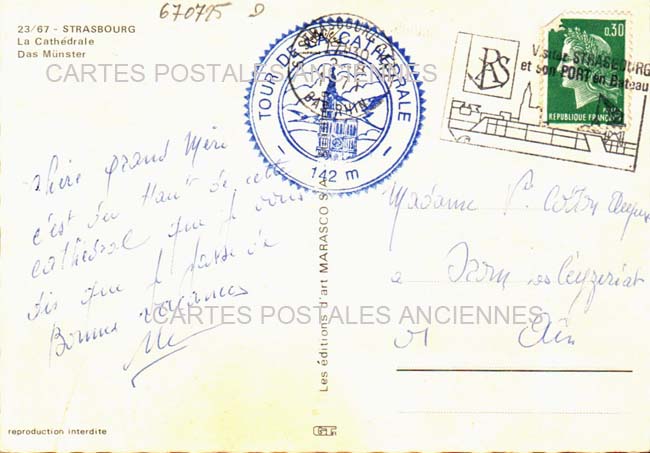 670795 D
23/67 - STRASBOURG
La Cathédrale
Das Münster
TOUR DE LA CATHÉDRALE
- 142 m -
STRASBOURG
BAS RHIN
PAS
Visitez STRASBOURG
et son PORT en Bateau
0,30
REPUBLIQUE FRANC
CARTES POSTALES ANCIENNES
chère grand Mère
c'est du Haut de cette
cathédral que je vous
dis que je passe de
Bonnes vacances
Madame
à
01 Ain
CARTES POSTALES ANCIENNES
Les éditions d'art MARASCO
reproduction interdite